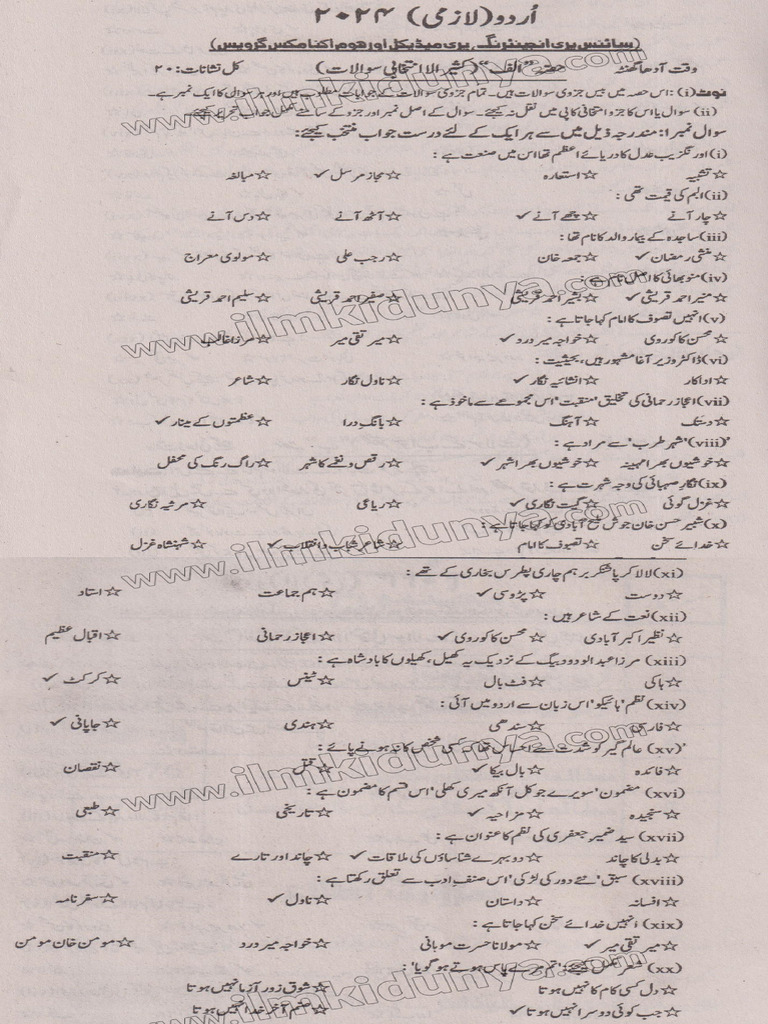 اُردو (لازمی) ۲۰۲۴
(سائنس پری انجینئرنگ، پری میڈیکل اور ہوم اکنامکس گروپس)
وقت آدھا گھنٹہ حصہ "الف" (کثیر الانتخابی سوالات) کل نشانات: ۲۰
نوٹ (i): اس حصہ میں بیس جزوی سوالات ہیں۔ تمام جزوی سوالات کے جوابات مطلوب ہیں اور ہر سوال کا ایک نمبر ہے۔
(ii) سوال یا اس کا جزو امتحانی کاپی میں نقل نہ کیجئے۔ سوال کے اصل نمبر اور جزو کے سامنے مکمل جواب تحریر کیجئے۔
سوال نمبر ۱: مندرجہ ذیل میں سے ہر ایک کے لئے درست جواب منتخب کیجئے:
(i) اورنگزیب عدل کا دریائے اعظم تھا اس میں صنعت ہے:
☆ تشبیہ ☆ استعارہ ☆ مجاز مرسل ✓ ☆ مبالغہ
(ii) البم کی قیمت تھی:
☆ چار آنے ☆ چھے آنے ✓ ☆ آٹھ آنے ☆ دس آنے
(iii) ساجدہ کے بیمار والد کا نام تھا:
☆ منشی رمضان ✓ ☆ جمعہ خان ☆ رجب علی ☆ مولوی معراج
(iv) منو بھائی کا اصل نام
☆ منیر احمد قریشی ✓ ☆ بشیر احمد قریشی ☆ صغیر احمد قریشی ☆ سلیم احمد قریشی
(v) انہیں تصوف کا امام کہا جاتا ہے:
☆ محسن کاکوروی ☆ خواجہ میر درد ✓ ☆ میر تقی میر ☆ مرزا غالب
(vi) ڈاکٹر وزیر آغا مشہور ہیں، بحیثیت:
☆ اداکار ☆ انشائیہ نگار ✓ ☆ ناول نگار ☆ شاعر
(vii) اعجاز رحمانی کی تخلیق 'منقبت' اس مجموعے سے ماخوذ ہے:
☆ دستک ☆ آہنگ ☆ بانگِ درا ☆ عظمتوں کے مینار ✓
(viii) 'شہر طرب' سے مراد ہے:
☆ خوشیوں بھرا مہینہ ☆ خوشیوں بھرا شہر ✓ ☆ رقص و نغمے کا شہر ☆ راگ رنگ کی محفل
(ix) نگار صہبائی کی وجہ شہرت ہے:
☆ غزل گوئی ☆ گیت نگاری ✓ ☆ رباعی ☆ مرثیہ نگاری
(x) شبیر حسن خان جوش ملیح آبادی کو کہا جاتا ہے:
☆ خدائے سخن ☆ تصوف کا امام ☆ شاعر شباب و انقلاب ✓ ☆ شہنشاہ غزل
(xi) لالا کرپا شنکر برہمچاری پطرس بخاری کے تھے:
☆ دوست ☆ پڑوسی ✓ ☆ ہم جماعت ☆ استاد
(xii) نعت کے شاعر ہیں:
☆ نظیر اکبر آبادی ☆ محسن کاکوروی ✓ ☆ اعجاز رحمانی ☆ اقبال عظیم
(xiii) مرزا عبدالودود بیگ کے نزدیک یہ کھیل، کھیلوں کا بادشاہ ہے:
☆ ہاکی ☆ فٹ بال ☆ ٹینس ☆ کرکٹ ✓
(xiv) نظم 'ہائیکو' اس زبان سے اردو میں آئی:
☆ فارسی ☆ سندھی ☆ ہندی ☆ جاپانی ✓
(xv) عالم گیر کو شدت سے احساس تھا کہ کسی شخص کا نہ ہونے پائے:
☆ فائدہ ☆ بال بیکا ✓ ☆ قتل ☆ نقصان
(xvi) مضمون 'سویرے جو کل آنکھ میری کھلی' اس قسم کا مضمون ہے:
☆ سنجیدہ ☆ مزاحیہ ✓ ☆ تاریخی ☆ طبعی
(xvii) سید ضمیر جعفری کی نظم کا عنوان ہے:
☆ بدلی کا چاند ☆ دو بہرے شناساؤں کی ملاقات ✓ ☆ چاند اور تارے ☆ منقبت
(xviii) سبق 'نئے دور کی لڑکی' اس صنفِ ادب سے تعلق رکھتا ہے:
☆ افسانہ ☆ داستان ☆ ناول ✓ ☆ سفرنامہ
(xix) انہیں خدائے سخن کہا جاتا ہے:
☆ میر تقی میر ✓ ☆ مولانا حسرت موہانی ☆ خواجہ میر درد ☆ مومن خان مومن
(xx) شعر مکمل کیجئے: 'تم مرے پاس ہوتے ہو گویا':
☆ دل کسی کام کا نہیں ہوتا ☆ شوق زور آزما نہیں ہوتا
☆ جب کوئی دوسرا نہیں ہوتا ✓ ☆ صنم آخر خدا نہیں ہوتا
www.ilmkidunya.com
www.ilmkidunya.com
www.ilmkidunya.com
www.ilmkidunya.com
www.ilmkidunya.com